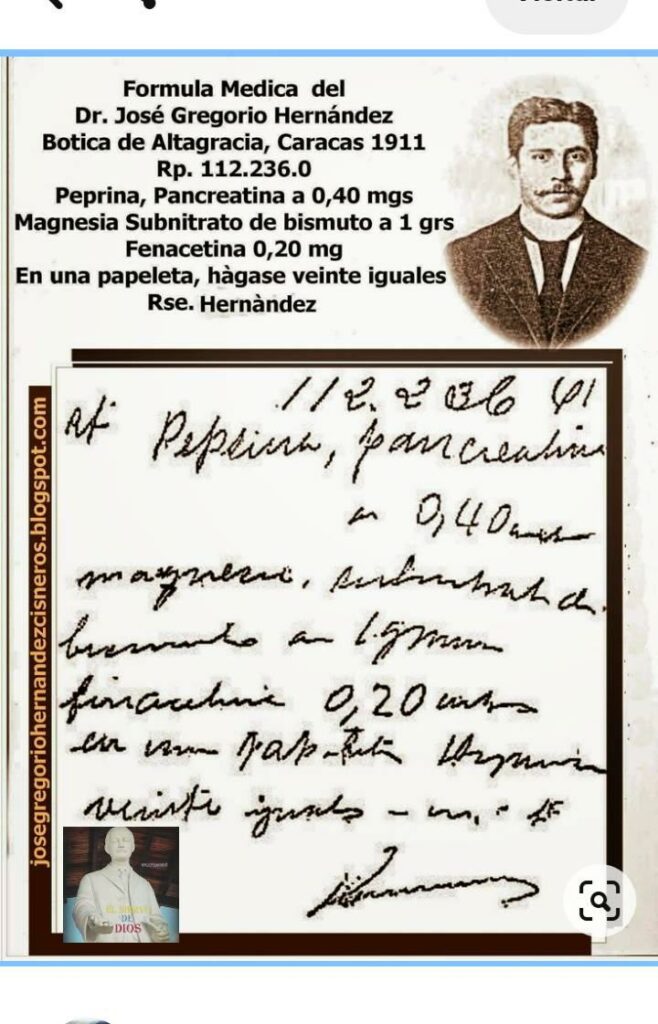 Formula Medica del
Dr. José Gregorio Hernández
Botica de Altagracia, Caracas 1911
Rp. 112.236.0
Peprina, Pancreatina a 0,40 mgs
Magnesia Subnitrato de bismuto a 1 grs
Fenacetina 0,20 mg
En una papeleta, hàgase veinte iguales
Rse. Hernàndez
josegregoriohernandezcisneros.blogspot.com
112.236
Pepsina, pancreatina
a 0,40
magnesia, subnitrato de
bismuto a 1 gramo
fenacetina 0,20
en una papeleta hágase
veinte iguales
EL SIERVO
DE
DIOS